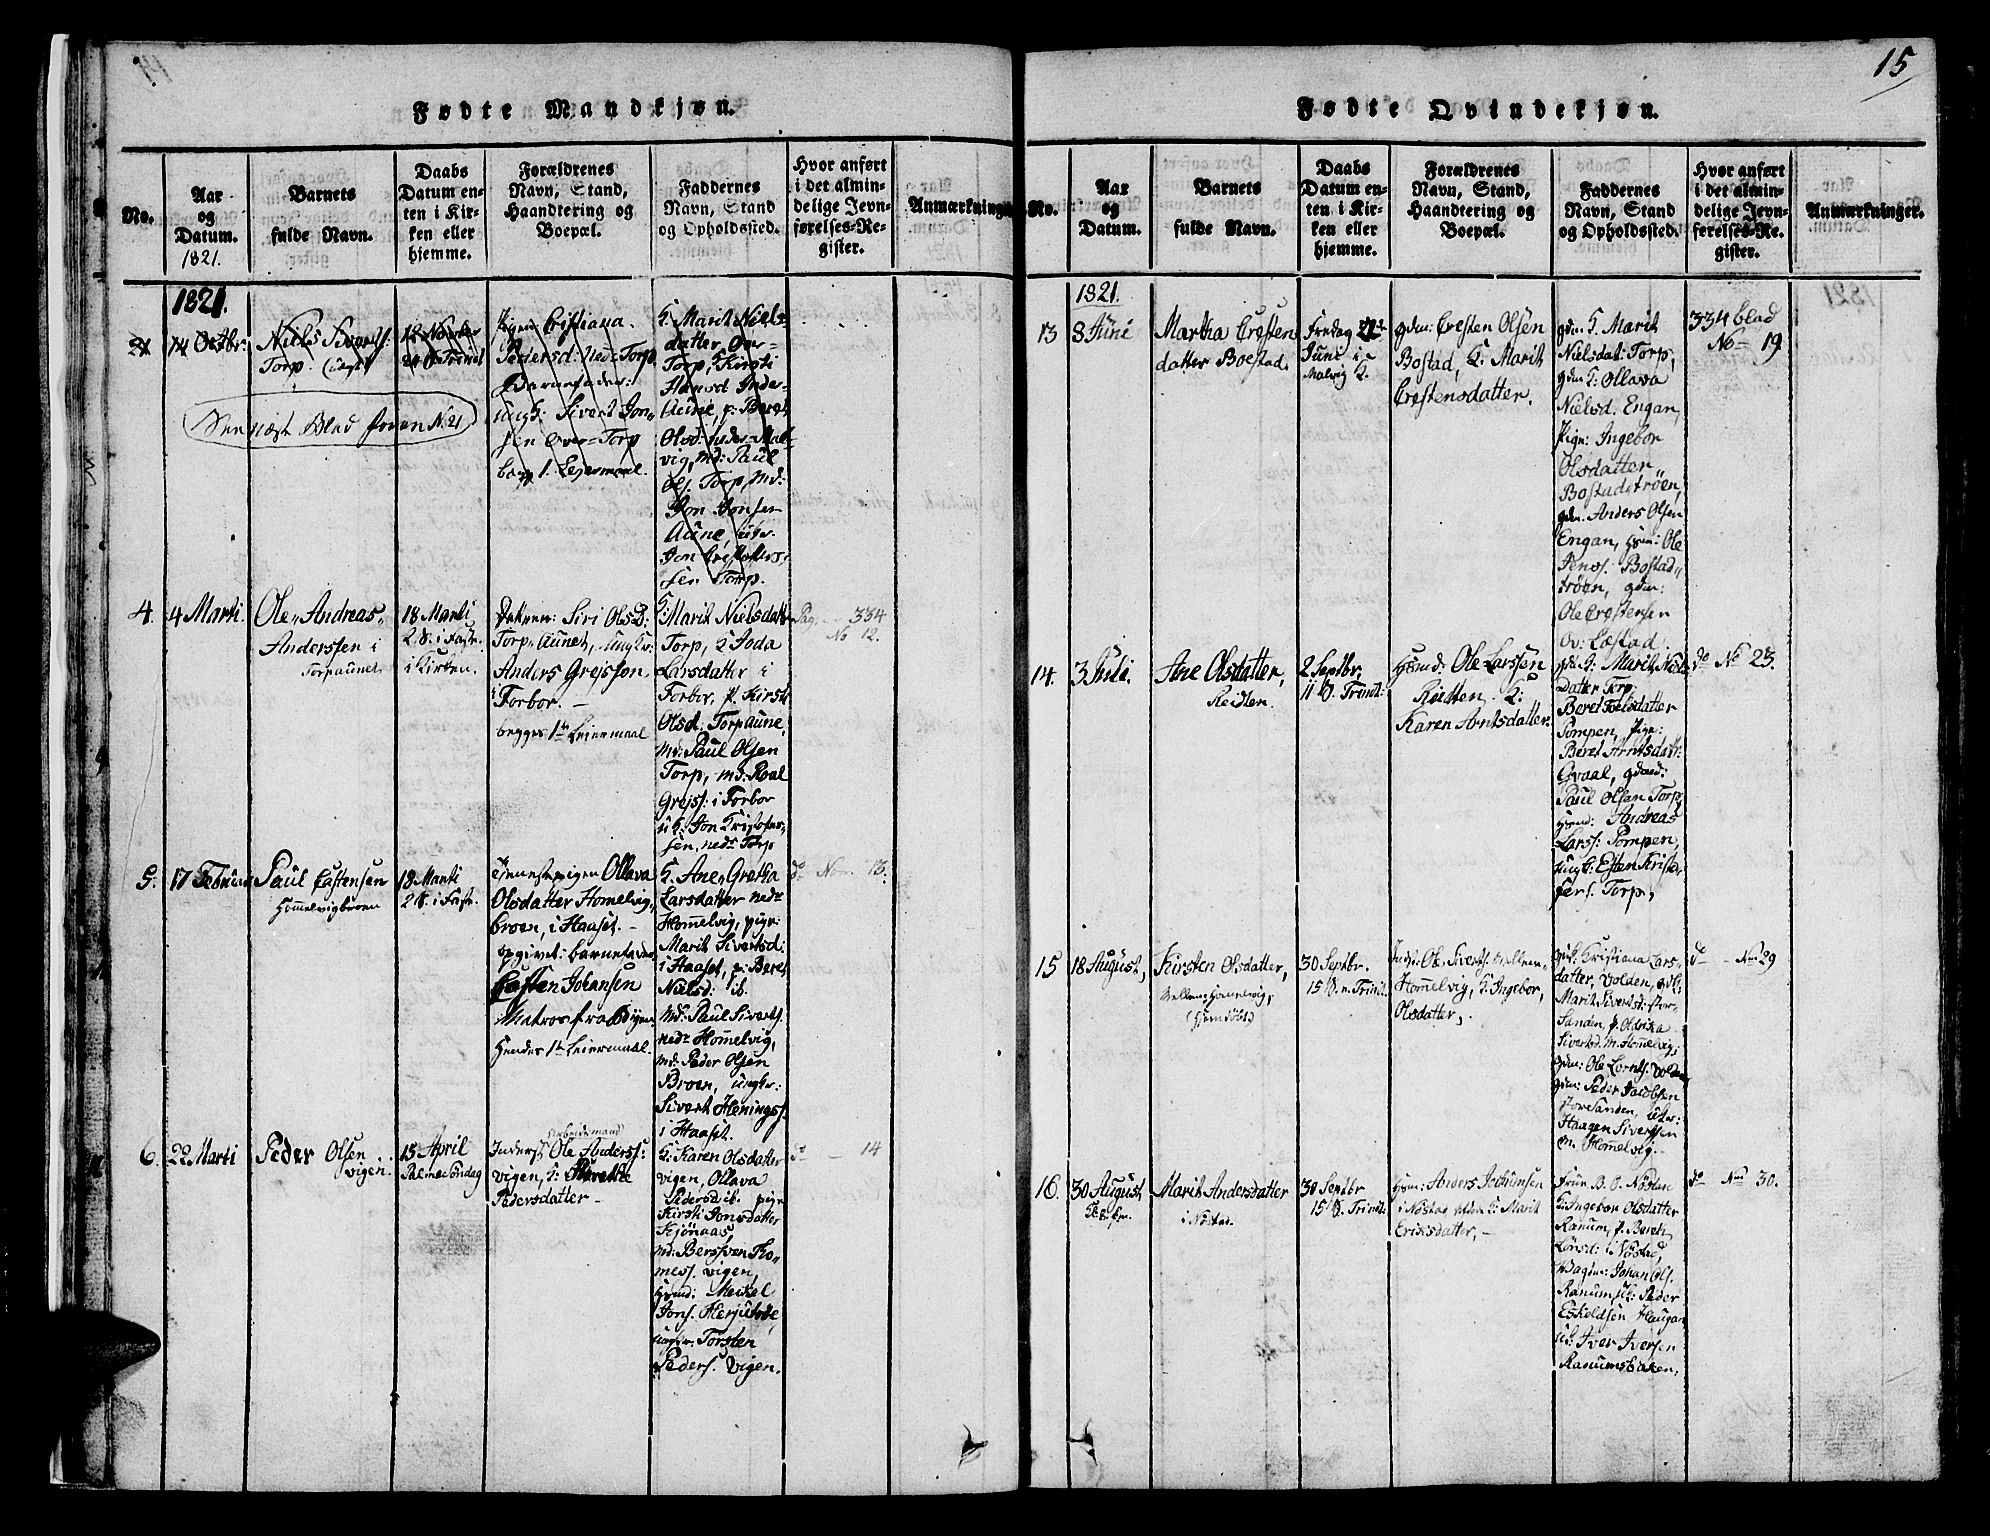 15
Fødte Mandkjøn.
No.
Aar
og
Datum.
1821.
Barnets
fulde Navn.
Daabs
Datum en-
ten i Kir-
ken eller
hjemme.
Forældrenes
Navn, Stand,
Haandtering og
Boepæl.
Faddernes
Navn, Stand
og Opholdssted.
Hvor anført
i det almin-
delige Jevn-
førelses-Re-
gister.
Anmærkninger
1821.
21
14 Octbr:
Niels Sivertf:
Torp.
18 Novbr
Pigen Cristiana
Pedersd: ned: Torp,
Barnefader:
ungk: Sivert Jon-
sen Over-Torp
begg 1. Leiermaal.
K: Marit Niels-
datter Over-
Torp, K: Kirsti
Hansd
Aune, p: Beret
Olsd:
vig, md: Paul
Olf. Torp, md:
Jon Jonsen
Aune,
Jon Crestoffers-
sen Torp.
See næst Blad foran N. 21
4.
4 Marti.
Ole Andreas
Anderssen i
Torpaunet
18 Marti
2 S. i Faste.
i Kirken.
Siri OlsD:
Torp-Aunet, Ungkr:
Anders Grejssøn
i Forbor. -
begges 1te Leiermaal
K: Marit Nielsdattr
Torp, K: Joda
Larsdatter i
Forbor, p. Kirsti
Olsd. Torpaune,
md: Paul Olsen
Torp, md: Roal
Grejss: i Forbor
u K: Jon Kristofer-
sen, nedr Torp
Pag: 334
No 12.
5.
17 Februar
Paul Castensen
Hommelvigbroen
18 Marti
2 S. i Faste.
Tjenestepigen Ollava
Olsdatter Homelvig-
broen, i Haaset. -
opgivet: barnefader
Casten Johansen
Matros fra
Hendes 1te Leiermaal.
K. Ane Gretha
Larsdatter nedr
Hommelvig, pige:
Marit Sivertsd:
i Haaset, p: Beret
Nielsd: ib.
Md: Paul Sivertf.
nedr Homelvig,
md: Peder Olsen
Broen, ungkr:
Sivert Henings:
i Haaset.
do Nom. 13.
6.
22 Marti
Peder Olsen
vigen.
15 April
Palmesöndag
Arbeidsmand
Inders: Ole Anderss:
vigen, K:
Pedersdatter -
K: Karen Olsdatter
vigen, Ollava
Pedersd ib. pige
Kirsti Jonsdatter
Kjönaas,
md: Berssven Tho-
mesf. vigen,
Hsmd: Meikel
Jonf.
ungkr. Torsten
Pederf. vigen.
do - 14
Fødte Qvindekjøn.
No.
Aar
og
Datum.
Barnets
fulde Navn.
Daabs
Datum en-
ten i Kir-
ken eller
hjemme.
Forældrenes
Navn, Stand,
Haandtering og
Boepæl.
Faddernes
Navn, Stand
og Opholdssted.
Hvor anført
i det almin-
delige Jevn-
førelses-Re-
gister.
Anmærkninger.
1821.
13
8 Juni
Martha Cresten
datter Bostad.
Fredag 22de
Juni i
Malvig K.
gdm: Cresten Olsen
Bostad, K: Marit
Crestensdatter.
gdm K. Marit
Nielsdat: Torp,
gdm K: Ollava
Nielsd. Engan,
Pige: Ingebor
Olsdatter
Bostadströen,
gdm. Anders Olsen
Engan, Hsm: Ole
Jensf. Bostad-
tröen, gdm:
Ole Crestensen
Ov: Læstad.
334 blad
No - 19
14.
3 Juli.
Ane Olsdatter,
Reidten.
2 Septbr,
11 S. Trinit:
Hsmd: Ole Larssen
Reidten. K:
Karen Arntsdatter.
gdm K: Marit Niels
Datter Torp,
Beret
Pompen, Pige:
Beret Arntsdatt:
Gvaal, gdmd:
Paul Olsen Torp,
Hsmd: Andreas
Larss: Pompen,
ungk: Esten Krister
fers. Torp,
do No 23.
15
18 August,
Kirsten Olsdatter,
Mellem Homelvig,
30 Septbr.
15 S. n. Trinit.
Indst: Ole Sivertf. Mellem-
Homelvig, K: Ingebor,
Olsdatter,
Kristiana Lars-
datter, Volden,
Marit Sivertsd: Stor-
Sanden, p. Oldviska
Sivertsd. M. Homelvig,
gdm: Ole Lorntf. Volden,
gdm: Peder Jacobsen
StorSanden,
Haagen Siverssen
m. Homelvig. -
do - Nm 29
16.
30 August
Marit Andersdatter
i Nöstad.
30 Septbr
15 S. Trinit:
Hsm: Anders Jochumsen
i Nöstad K: Marit
Eriksdatter, -
Frue B. O. Nösten
K: Ingebor Olsdatter
Ranum, p. Beret
Larsd: i Nöstad,
Johan Olf.
Ranum K: Peder
Eskeldsen Haugan
uk: Iver Iversen
Ranumsbaken,
do Nm 30.